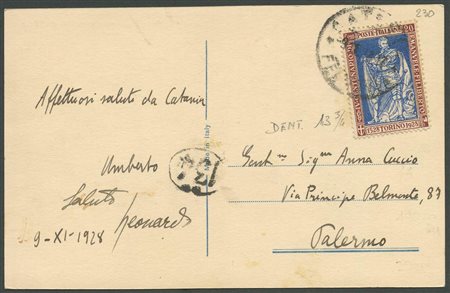 230
Affettuosi saluti da Catania
Umberto
Saluti
Leonardo
9-XI-1928
in Italy
DENT. 13 3/4
POSTE ITALIANE
20
1528 TORINO 1928
Gent.ma Sig.na Anna Cuccia
Via Principe Belmonte, 87
Palermo